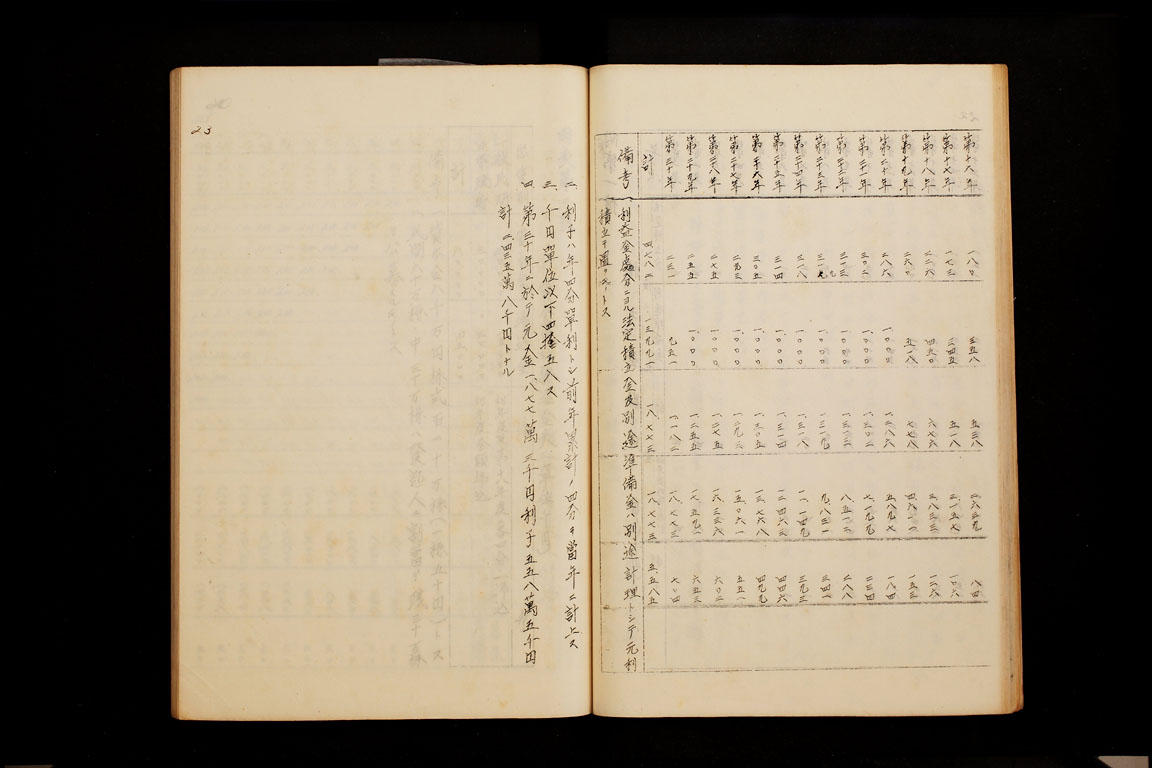 第十六年 一八〇 三五八 五三八 二、六三九 八四
第十七年 一七三 三四五 五一八 三、一五七 一〇六
第十八年 二二六 四五〇 六七六 三、八三三 一二六
第十九年 二六〇 五一八 七七八 四、六一一 一五三
第二十年 二八六 一、〇〇〇 一、二八六 五、八九七 一八四
第二十一年 三〇二 一、〇〇〇 一、三〇二 七、一九九
第二十二年 三一三 一、〇〇〇 一、三一三 八、五一二 二八八
第二十三年 三一九 一、〇〇〇 一、三一九 九、八三一 三四一
第二十四年 三一八 一、〇〇〇 一、三一八 一一、一四九 三九三
第二十五年 三一四 一、〇〇〇 一、三一四 一二、四六三 四四六
第二十六年 三〇五 一、〇〇〇 一、三〇五 一三、七六八 四九九
第二十七年 二九三 一、〇〇〇 一、二九三 一五、〇六一 五五一
第二十八年 二七五 一、〇〇〇 一、二七五 一六、三三六 六〇二
第二十九年 二五五 一、〇〇〇 一、二五五 一七、五九一 六五三
第三十年 二三一 九五一 一、一八二 一八、七七三 七〇四
計 四、七八二 一三、九九一 一八、七七三 一八、七七三 五、五八五
備考 一、利益金處分ニヨル法定積立金及別途準備金ハ別途計理トシテ元利
積立テ置クコトス
二、利子ハ年四分單利トシ前年累計ノ四分ヲ當年ニ計上ス
三、千円單位以下四捨五入ス
四、第三十年ニ於テ元金一、八七七萬三千円利子五五八萬五千円
計二、四三五萬八千円トナル
23